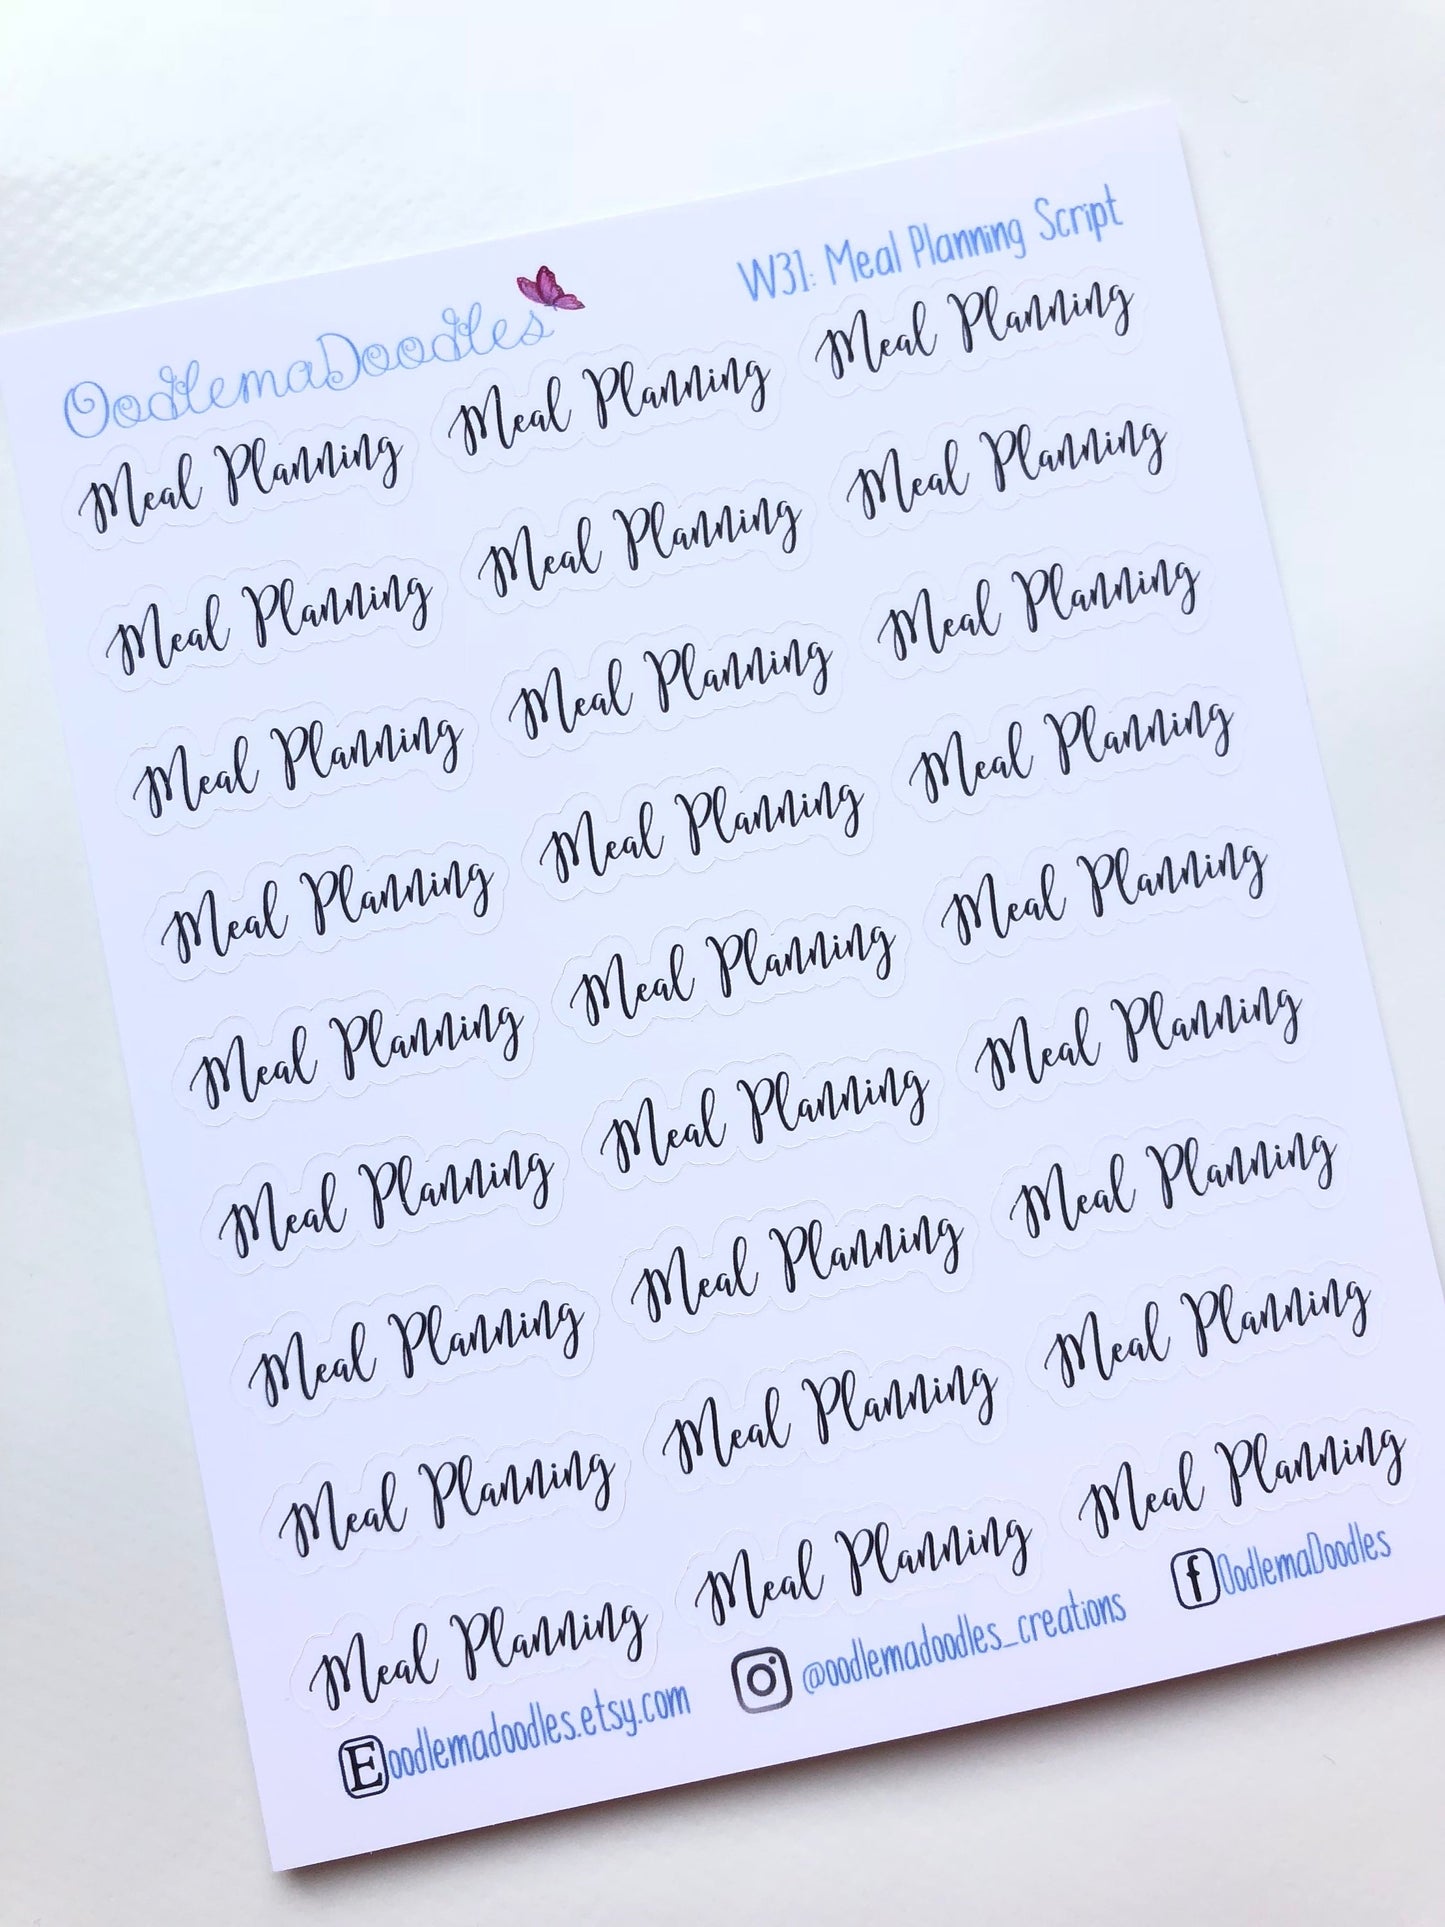 OodlemaDoodles W31: Meal Planning Script
Meal Planning Meal Planning Meal Planning
Meal Planning Meal Planning Meal Planning
Meal Planning Meal Planning Meal Planning
Meal Planning Meal Planning Meal Planning
Meal Planning Meal Planning Meal Planning
Meal Planning Meal Planning Meal Planning
Meal Planning Meal Planning Meal Planning
Meal Planning Meal Planning Meal Planning
Meal Planning Meal Planning Meal Planning
E oodlemadoodles.etsy.com @oodlemadoodles_creations f OodlemaDoodles